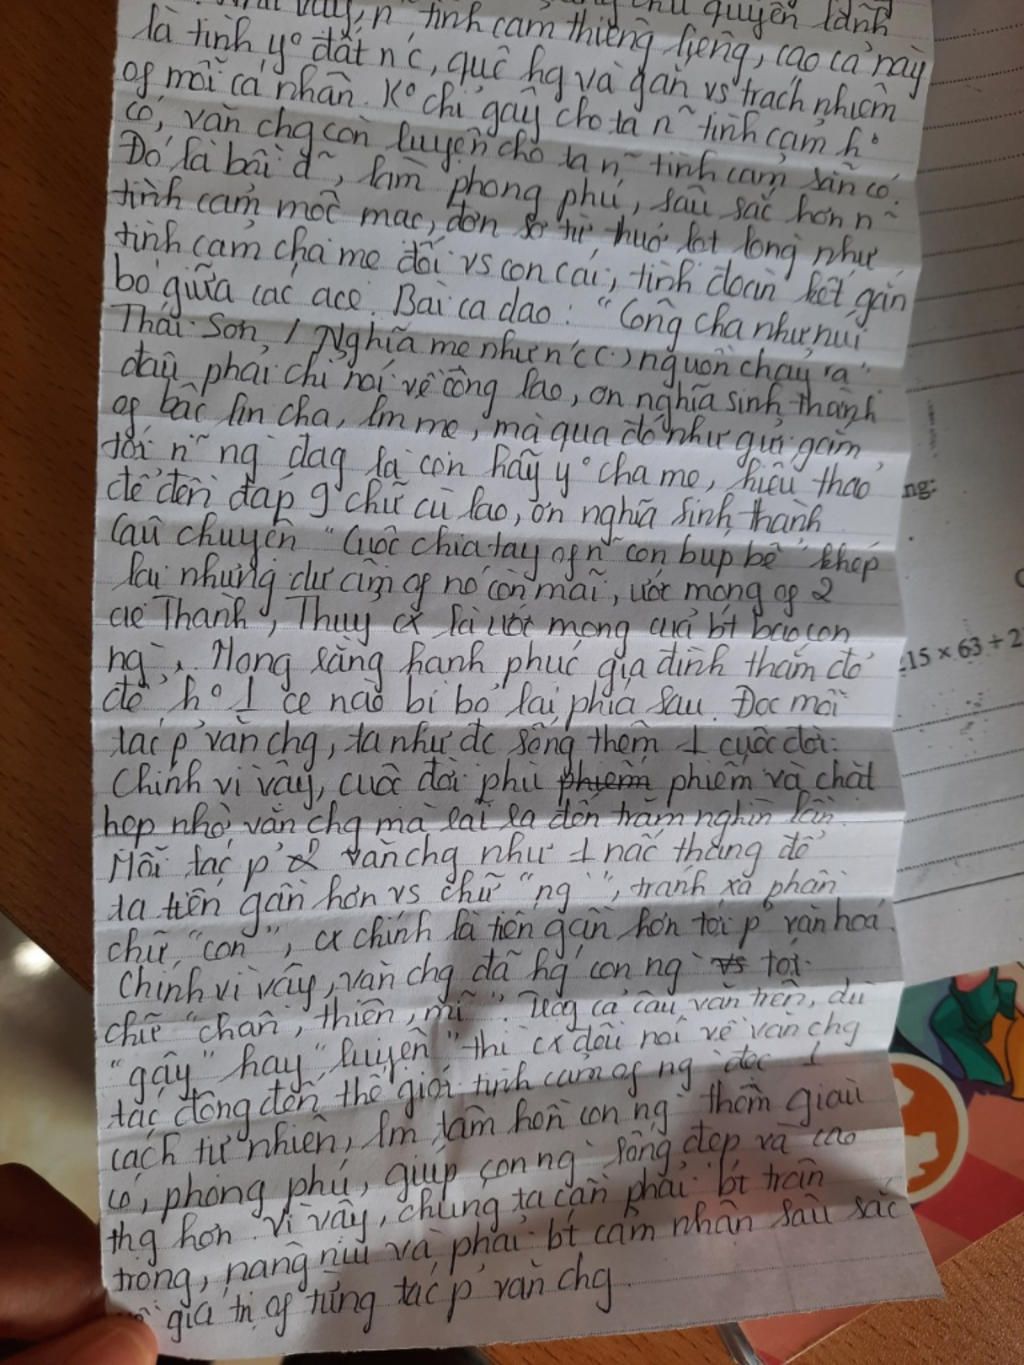 vậy, n~ tình cảm thiêng liêng, cao cả này
là tình yº đất nć, quê hg và gắn vs trách nhiệm
of mỗi cá nhân. Kº chỉ gây cho ta n~ tình cảm hº
có, văn chg còn luyện cho ta n~ tình cảm sẵn có.
Đó là bồi d~, làm phong phú, sâu sắc hơn n~
tình cảm mộc mạc, đơn sơ từ thuở lọt lòng như
tình cảm cha mẹ đối vs con cái, tình đoàn kết gắn
bó giữa các ace. Bài ca dao: "Công cha như núi
Thái Sơn / Nghĩa mẹ như nć (.) nguồn chảy ra"
đâu phải chỉ nói về công lao, ơn nghĩa sinh thành
of bậc lm cha, lm mẹ, mà qua đó như gửi gắm
tới n~ ng` đag là con hãy yº cha mẹ, hiếu thảo
để đền đáp 9 chữ cù lao, ơn nghĩa sinh thành.
Câu chuyện "Cuộc chia tay of n~ con búp bê" khép
lại nhưng dư âm of nó còn mãi, ước mong of 2
ae Thành, Thủy cx là ước mong của bt bao con
ng`. Mong rằng hạnh phúc gia đình thắm đỏ
để hº 1 ce nào bị bỏ lại phía sau. Đọc mỗi
tác p' văn chg, ta như đc sống thêm 1 cuộc đời.
Chính vì vậy, cuộc đời phù phiếm phiếm và chật
hẹp nhờ văn chg mà lại ra đến trăm nghìn lần.
Mỗi tác p' văn chg như 1 nấc thang để
ta tiến gần hơn vs chữ "ng`", tránh xa phần
chữ "con", cx chính là tiến gần hơn tới p' văn hoá.
Chính vì vậy, văn chg đã hg' con ng` vs tới
chữ "chân, thiện, mĩ". Trog cả câu văn trên, dù
"gây" hay "luyện" thì cx đều nói về văn chg
tác động đến thế giới tình cảm of ng` đọc 1
cách tự nhiên, lm tâm hồn con ng` thêm giàu
có, phong phú, giúp con ng` sống đẹp và cao
thg hơn. Vì vậy, chúng ta cần phải bt trân
trọng, nâng niu và phải bt cảm nhận sâu sắc
giá trị of từng tác p' văn chg.
ng:
15 × 63 + 2